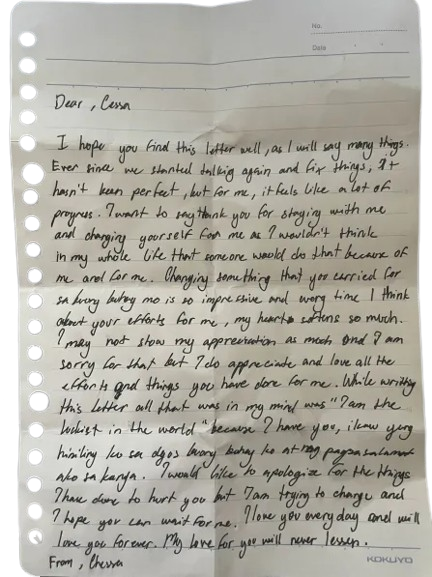 No.
Date
Dear, Cessa
I hope you find this letter well, as I will say many things.
Ever since we started talking again and fix things, It
hasn't been perfect, but for me, it feels like a lot of
progress. I want to say thank you for staying with me
and changing yourself for me as I wouldn't think
in my whole life that someone would do that because of
me and for me. Changing something that you carried for
sa buong buhay mo is so impressive and every time I think
about your efforts for me, my heart softens so much.
I may not show my appreciation as much and I am
sorry for that but I do appreciate and love all the
efforts and things you have done for me. While writing
this letter all that was in my mind was "I am the
luckist in the world" because I have you, ikaw yung
hiniling ko sa dyos buong buhay ko at nag papasalamat
ako sa kanya. I would like to apologize for the things
I have done to hurt you but I am trying to change and
I hope you can wait for me. I love you everyday and will
love you forever. My love for you will never lessen.
From, Chessa
KOKUYO